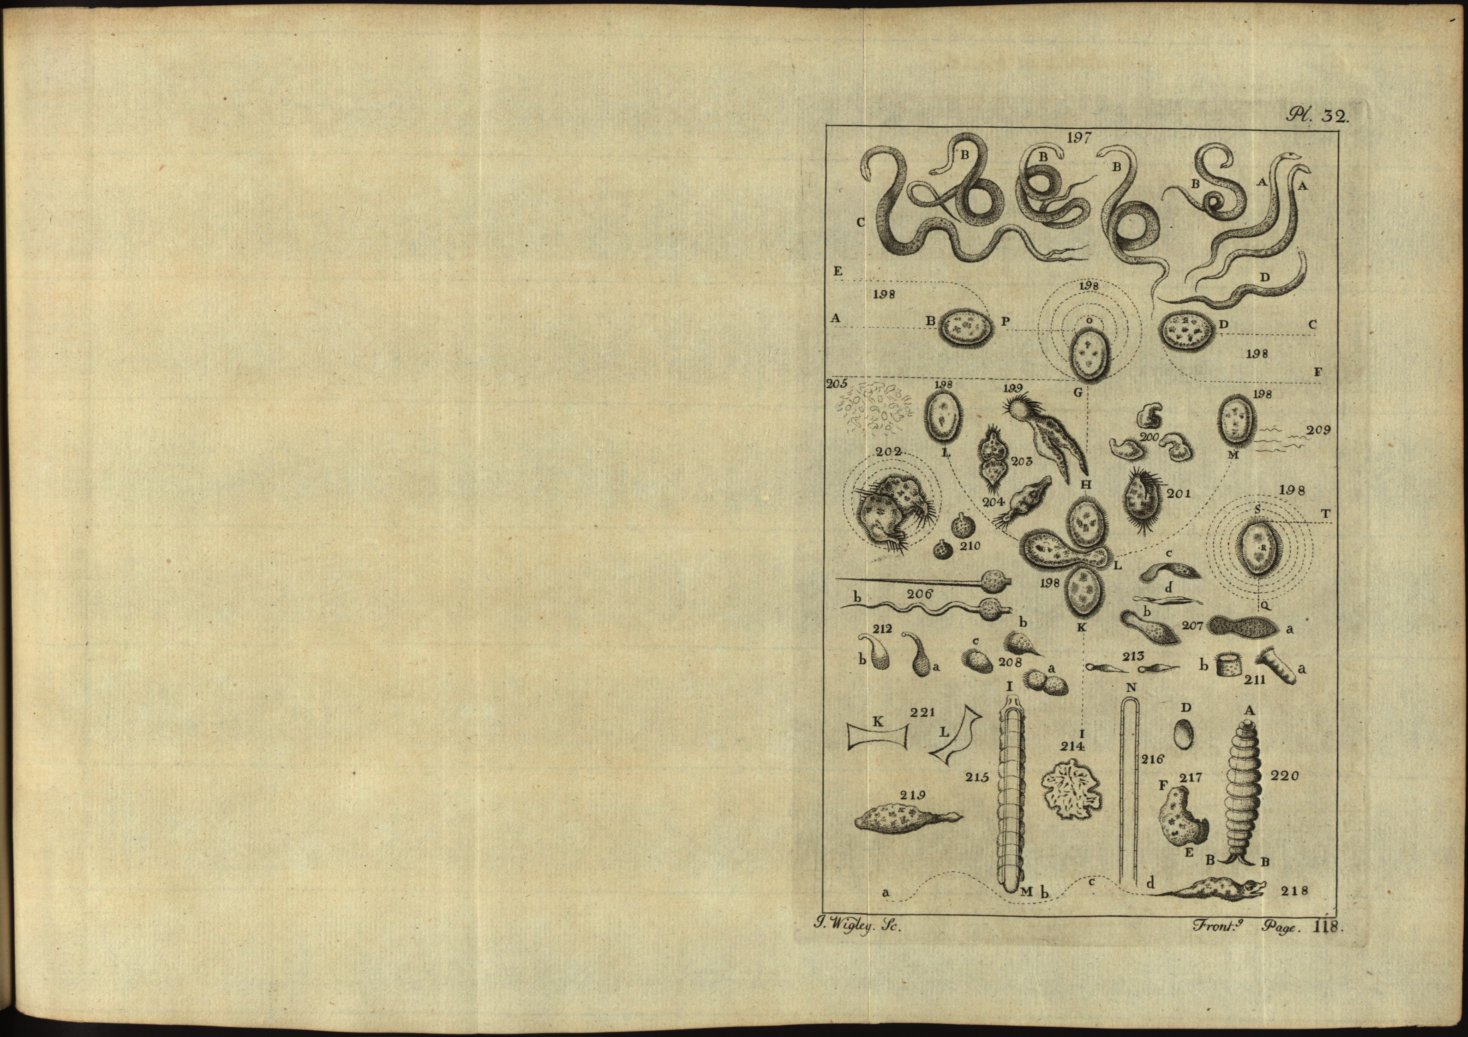 Pl. 32.
197
B
B
B
B
A
A
C
D
E
198
198
A
B
P
O
D
C
198
F
205
198
G
199
198
200
209
202
L
203
M
H
201
198
204
S
T
R
210
L
c
198
d
b
206
b
Q
K
207
a
212
b
c
208
b
a
a
213
b
211
a
I
N
D
A
K
221
L
I
214
215
216
F
217
220
219
E
B
B
a
M
b
c
d
218
J. Wigley. Sc.
Front.g Page. 118.